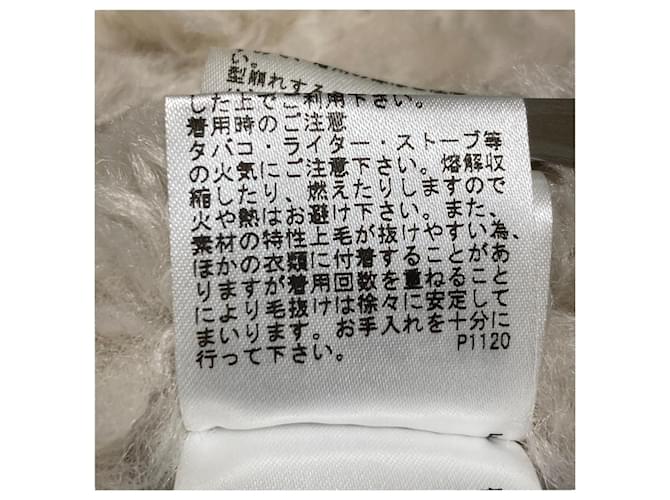 い。
型崩れする
した上でご利用下さい。
着用時のご注意
タバコ・ライター・ストーブ等
の火気にご注意下さい。熔解収
縮したり、燃えたりしますので、
火や熱はお避け下さい。また、
素材の特性上毛が抜けやすい為、
ほかの衣類に付着することがあ
りますが着用回数を重ねるごと
により毛抜けは徐々に安定して
まいります。お手入れを十分に
行って下さい。
P1120